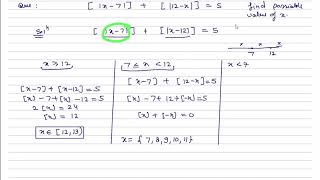 Que : [ |x-7| ] + [ |12-x| ] = 5 find possible value of x.
Solⁿ [ |x-7| ] + [ |x-12| ] = 5
7 x 12
x ≥ 12, 7 ≤ x < 12, x < 7
[x-7] + [x-12] = 5 [x-7] + [12-x] = 5
[x] - 7 + [x] - 12 = 5 [x] - 7 + 12 + [-x] = 5
2 [x] = 24 [x] + [-x] = 0
[x] = 12
x ∈ [12, 13) x = { 7, 8, 9, 10, 11 }